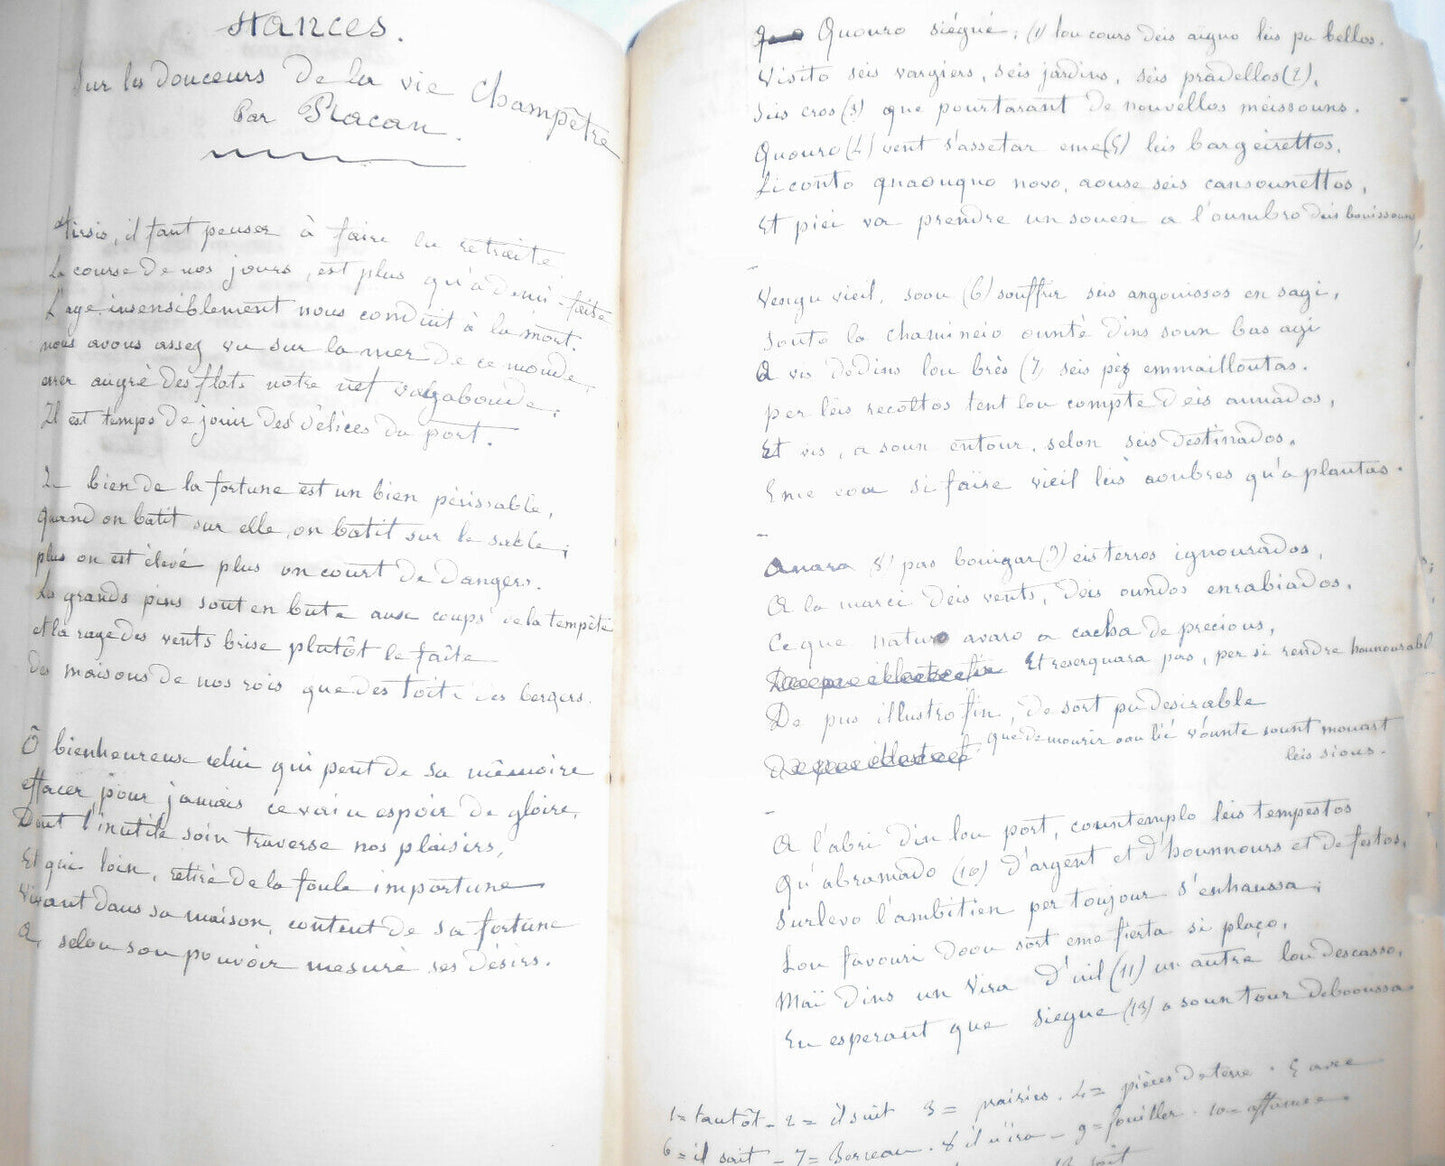 Stances.
Sur les douceurs de la vie Champêtre
Par Racan.
Tirsis, il faut penser à faire la retraite,
La course de nos jours, est plus qu'à demi-faite
L'age insensiblement nous conduit à la mort.
nous avons assez vu sur la mer de ce monde,
errer au gré des flots notre nef vagabonde;
Il est temps de jouir des délices du port.
Le bien de la fortune est un bien périssable,
quand on batit sur elle, on batit sur le sable;
plus on est élevé plus on court de dangers.
Les grands pins sont en bute aux coups de la tempête
et la rage des vents brise plutôt le faîte
des maisons de nos rois que des toits des bergers.
Ô bienheureux celui qui peut de sa mémoire
effacer, pour jamais ce vain espoir de gloire,
Dont l'inutile soin traverse nos plaisirs,
Et qui loin, retiré de la foule importune
Vivant dans sa maison, content de sa fortune
A, selon son pouvoir mesuré ses désirs.
Quouro siégué, (1) lou cours deis aiguo leis pu bellos.
Visito seis vargiers, seis jardins, seis pradellos (2),
Seis cros (3) que pourtarant de nouvellos meissouns.
Quouro (4) vent s'assetar eme (5) leis bargeirettos,
Li conto quaouquo novo, aouse seis cansounettos,
Et piei va prendre un souen a l'oumbro deis bouissouns
Vengu vieil, soou (6) souffrir seis angouissos en sagi,
Souto la chamineio ounté dins soun bas agi
A vis dedins lou brès (7) seis pèz emmailloutas.
per leis recoltos tent lou compte deis annados,
Et vis, a soun entour, selon seis destinados,
Eme eou si faire vieil leis aoubres qu'a plantas.
Anara 8 pas bouigar (9) eis terros ignourados,
A la marci deis vents, deis oundos enrabiados,
Ce que naturo avaro a cacha de precious,
Et reserquara pas, per si rendre hounourable
De pus illustro fin, de sort pu desirable
que de mourir oou lié vounte sount mouart
leis sious.
A l'abri din lou port, countemplo leis tempestos
Qu'abramado (10) d'argent et d'hounnours et de festos,
Surlevo l'ambitien per toujour s'enhaussa;
Lou favouri doou sort eme fierta si plaço,
Maï dins un vira d'uil (11) un autre lou descasso,
En esperant que siegue (13) a soun tour debooussa.
1 = tantôt - 2 = il suit 3 = prairies. 4 = pièces de terre. 5 avec
6 = il sait - 7 = Berceau. 8 il n'ira - 9 = fouiller. 10 = affamée.
soit